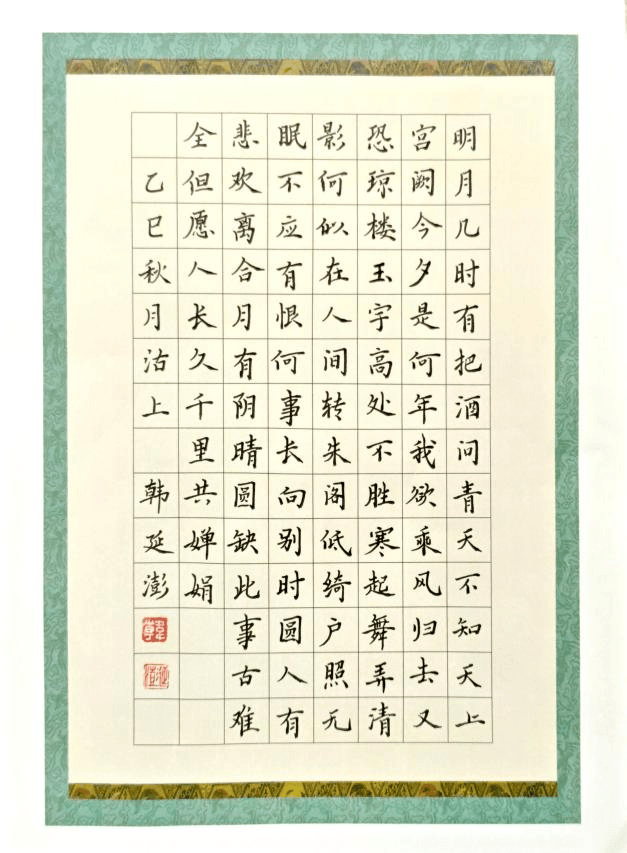 明月几时有把酒问青天不知天上
宫阙今夕是何年我欲乘风归去又
恐琼楼玉宇高处不胜寒起舞弄清
影何似在人间转朱阁低绮户照无
眠不应有恨何事长向别时圆人有
悲欢离合月有阴晴圆缺此事古难
全但愿人长久千里共婵娟
乙巳秋月沽上 韩延澎